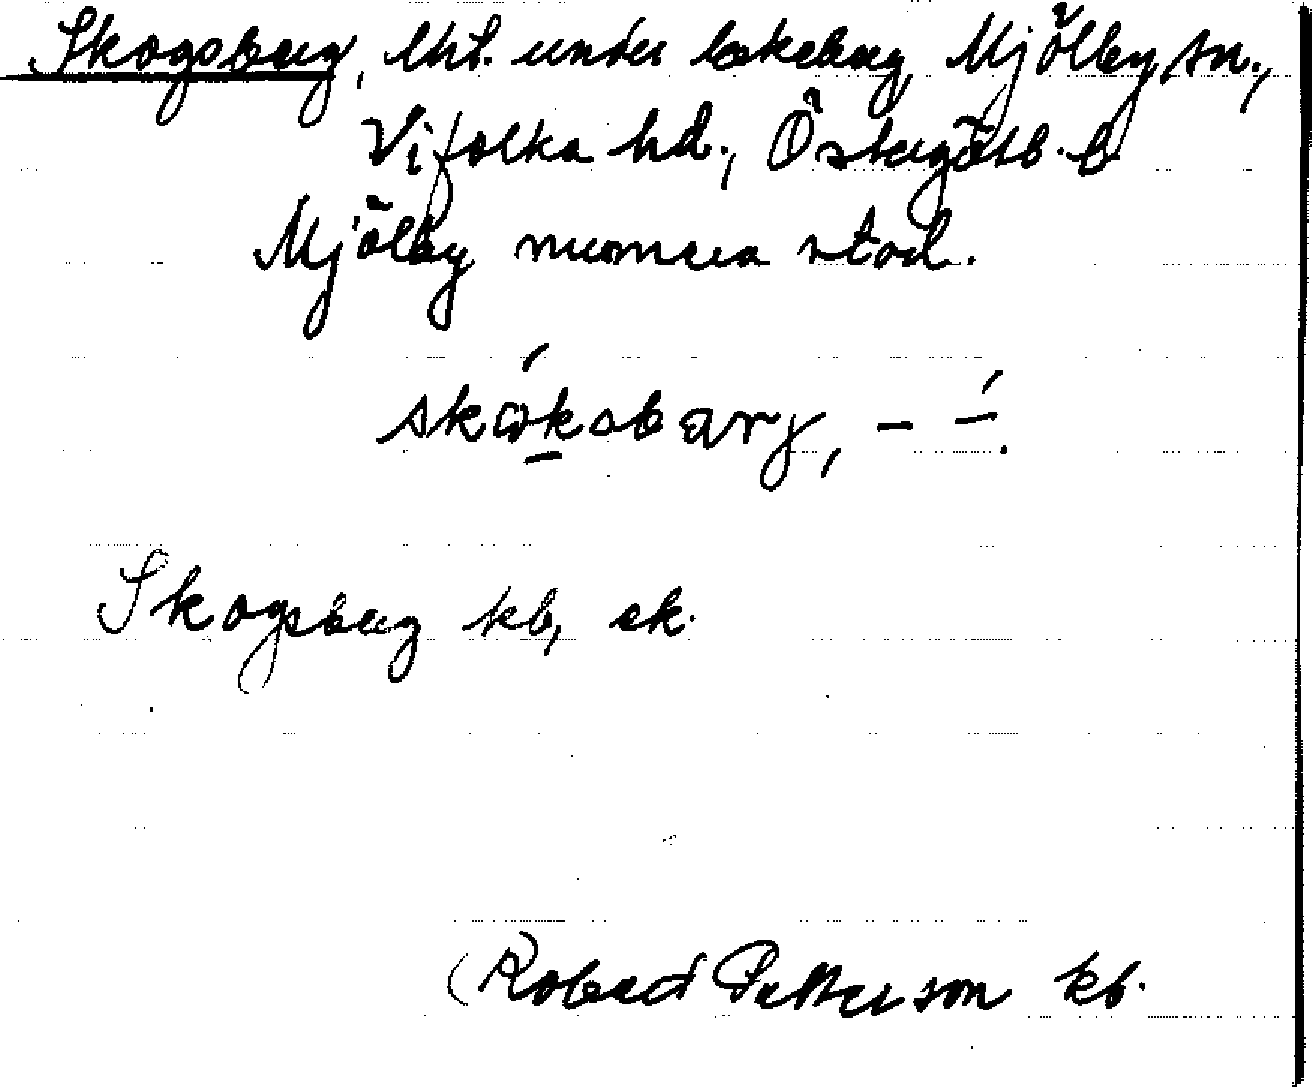 Skogsberg, lht. under Lekeberg, Mjölby sn.,
Vifolka hd., Östergötl. l.
Mjölby numera stad.
skoksbarj, – –́.
Skogsberg kb, ek.
(Robert Pettersson kb.